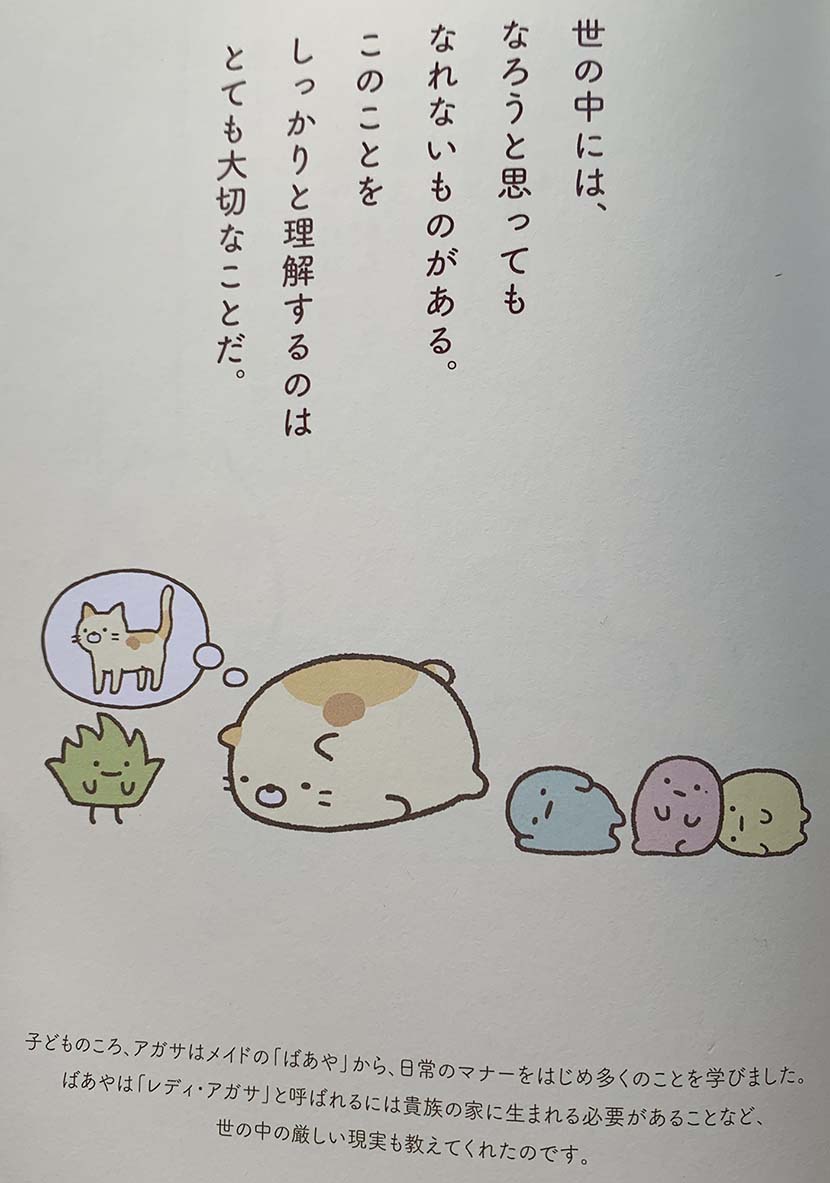 世の中には、
なろうと思っても
なれないものがある。
このことを
しっかりと理解するのは
とても大切なことだ。
子どものころ、アガサはメイドの「ばあや」から、日常のマナーをはじめ多くのことを学びました。
ばあやは「レディ・アガサ」と呼ばれるには貴族の家に生まれる必要があることなど、
世の中の厳しい現実も教えてくれたのです。